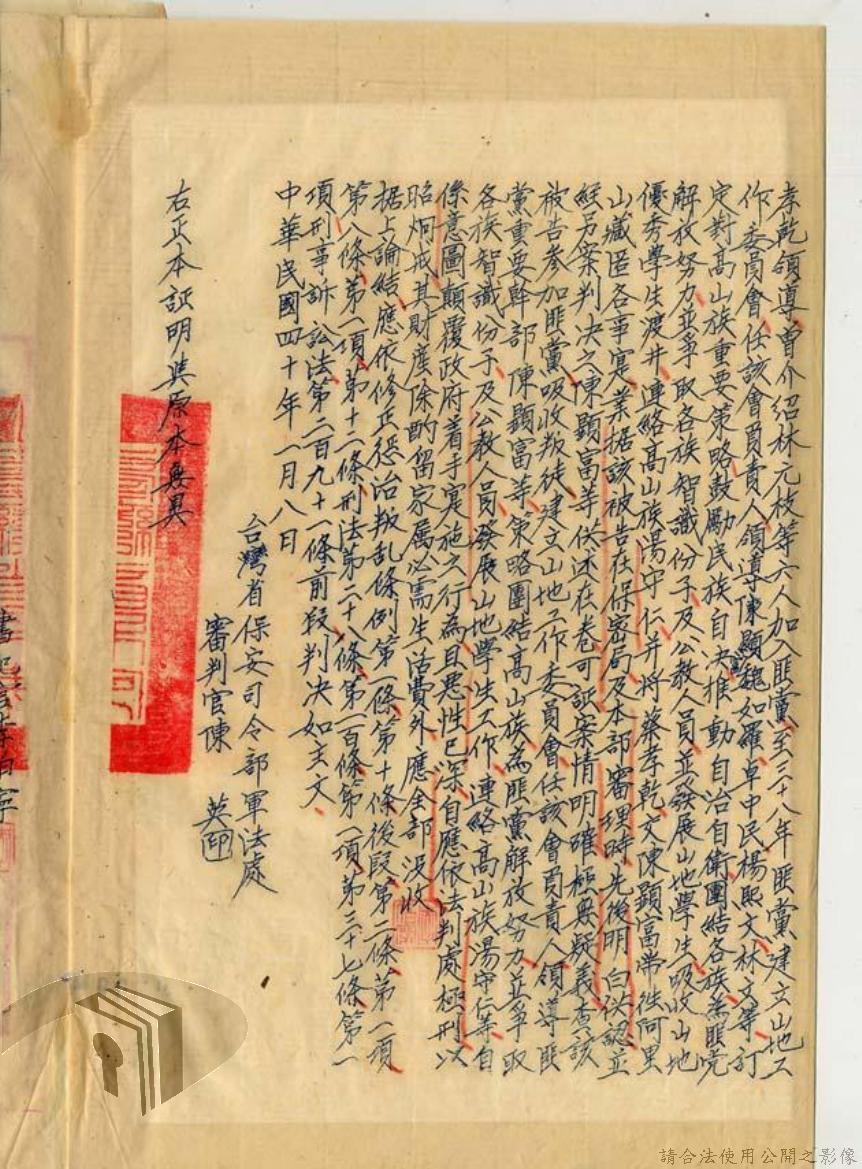 孝乾領導、曾介紹林元枝等六人加入匪黨、至三十八年匪黨建立山地工
作委員會、任該會負責人、領導陳顯富魏如羅、卓中民、楊熙文、林文等、訂
定對高山族重要策略、鼓勵民族自決、推動自治自衛、團結各族、為匪党
解放努力、並爭取各族智識份子、及公教人員、並發展山地學生、吸收山地
優秀學生渡井、連絡高山族湯守仁、并將蔡孝乾、交陳顯富帶往阿里
山藏匿各事寔、業据該被告在保密局及本部審理時、先後明白供認、並
經另案判決之陳顯富等供述在卷可証、案情明確、極無疑義、查該
被告參加匪黨、吸收叛徒、建立山地工作委員會、任該會負責人、領導匪
黨重要幹部陳顯富等、策略團結高山族、為匪黨解放努力、並爭取
各族智識份子、及公教人員、發展山地學生工作、連絡高山族湯守仁等、自
係意圖顛覆政府着手寔施之行為、且惡性已深、自應依法判處極刑、以
昭炯戒、其財產除酌留家属必需生活費外、應全部没收
据上論結、應依修正懲治叛乱條例第一條、第十條後段、第二條、第一項
第八條、第一項、第十二條、刑法第二十八條、第一百條、第一項、第三十七條、第一
項、刑事訴訟法第二百九十一條前段、判決如主文、
中華民國四十年一月八日
台灣省保安司令部軍法處
審判官陳英印
右正本証明與原本無異
書記官
請合法使用公開之影像